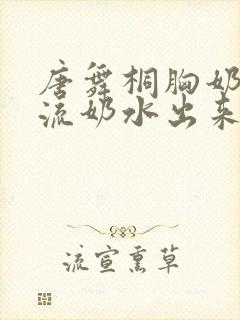 唐舞桐胸奶
流奶水出来
流宣熏草